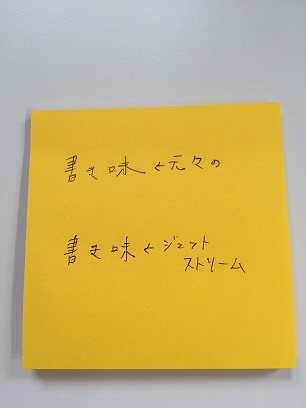 書き味←元々の
書き味←ジェット
ストリーム